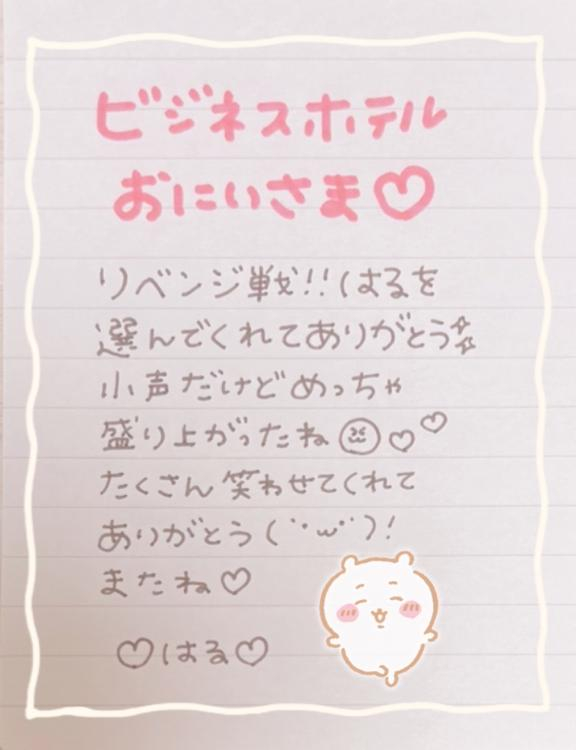 ビジネスホテル
おにいさま♡
リベンジ戦!!はるを
選んでくれてありがとう✨
小声だけどめっちゃ
盛り上がったね😆♡♡
たくさん笑わせてくれて
ありがとう(¨·ω¨)!
またね♡
♡はる♡